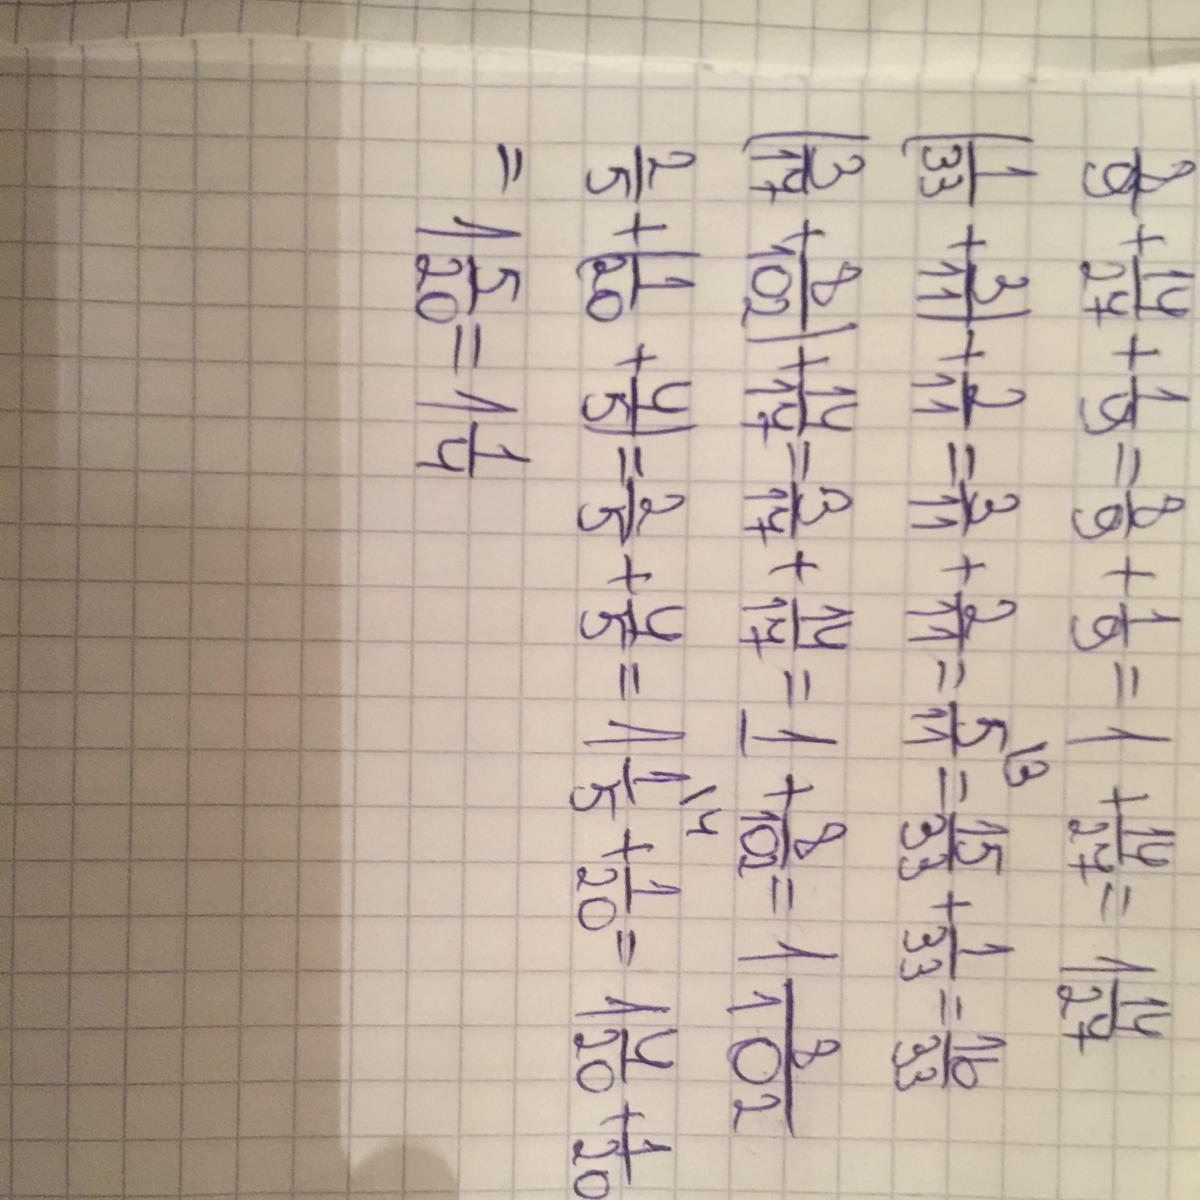 8/9 + 14/27 + 1/9 = 8/9 + 1/9 = 1 + 14/27 = 1 14/27
(1/33 + 3/11) + 2/11 = 3/11 + 2/11 = 5/11 \3 = 15/33 + 1/33 = 16/33
(3/17 + 8/102) + 14/17 = 3/17 + 14/17 = 1 + 8/102 = 1 8/102
2/5 + (1/20 + 4/5) = 2/5 + 4/5 = 1 1/5 \4 + 1/20 = 1 4/20 + 1/20
= 1 5/20 = 1 1/4